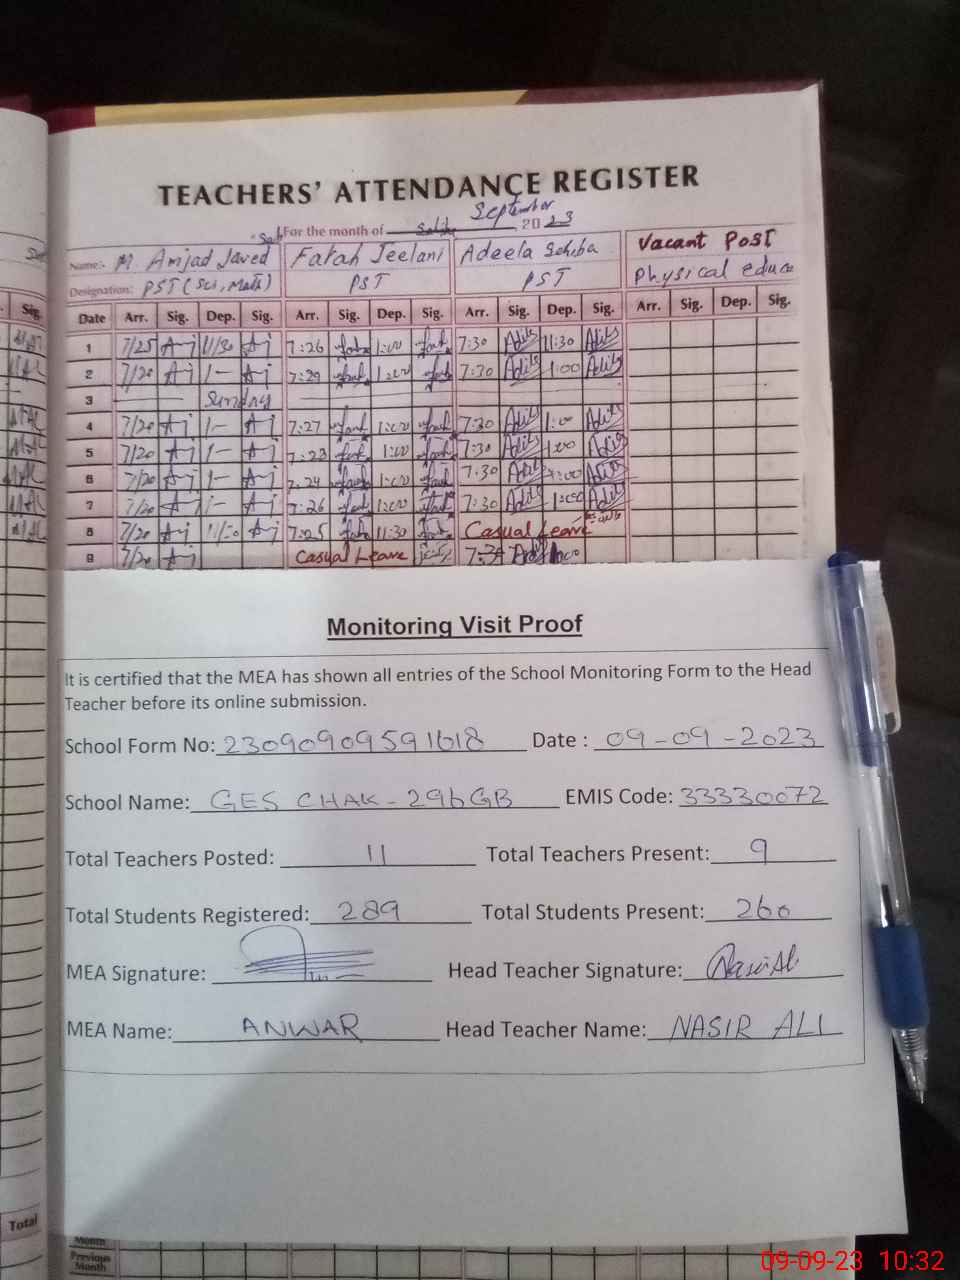 TEACHERS' ATTENDANCE REGISTER
For the month of September 2023
Name:- M. Amjad Javed Farah Jeelani Adeela Sehiba Vacant Post
Designation: PST (Sci, Math) PST PST Physical educa
Sig. Date Arr. Sig. Dep. Sig. Arr. Sig. Dep. Sig. Arr. Sig. Dep. Sig. Arr. Sig. Dep. Sig.
1 7/25 A-j 11/30 A-j 7:26 1:00 7:30 11:30
2 7/20 A-j 1- A-j 7:29 1:00 7:30 1:00
3 Sunday
4 7/20 A-j 1- A-j 7:27 1:00 7:30 1:00
5 7/20 A-j 1- A-j 7:23 1:00 7:30 1:00
6 7/20 A-j 1- A-j 7:24 1:00 7:30 1:00
7 7/20 A-j 1- A-j 7:26 1:00 7:30 1:00
8 7/20 A-j 11/30 A-j 7:25 11:30 Casual Leave
9 7/20 A-j Casual Leave
Monitoring Visit Proof
It is certified that the MEA has shown all entries of the School Monitoring Form to the Head
Teacher before its online submission.
School Form No: 23090909591618 Date : 09-09-2023
School Name: GES CHAK-296GB EMIS Code: 33330072
Total Teachers Posted: 11 Total Teachers Present: 9
Total Students Registered: 289 Total Students Present: 260
MEA Signature: Head Teacher Signature:
MEA Name: ANWAR Head Teacher Name: NASIR ALI
Total
Month
Previous
Month
09-09-23 10:32